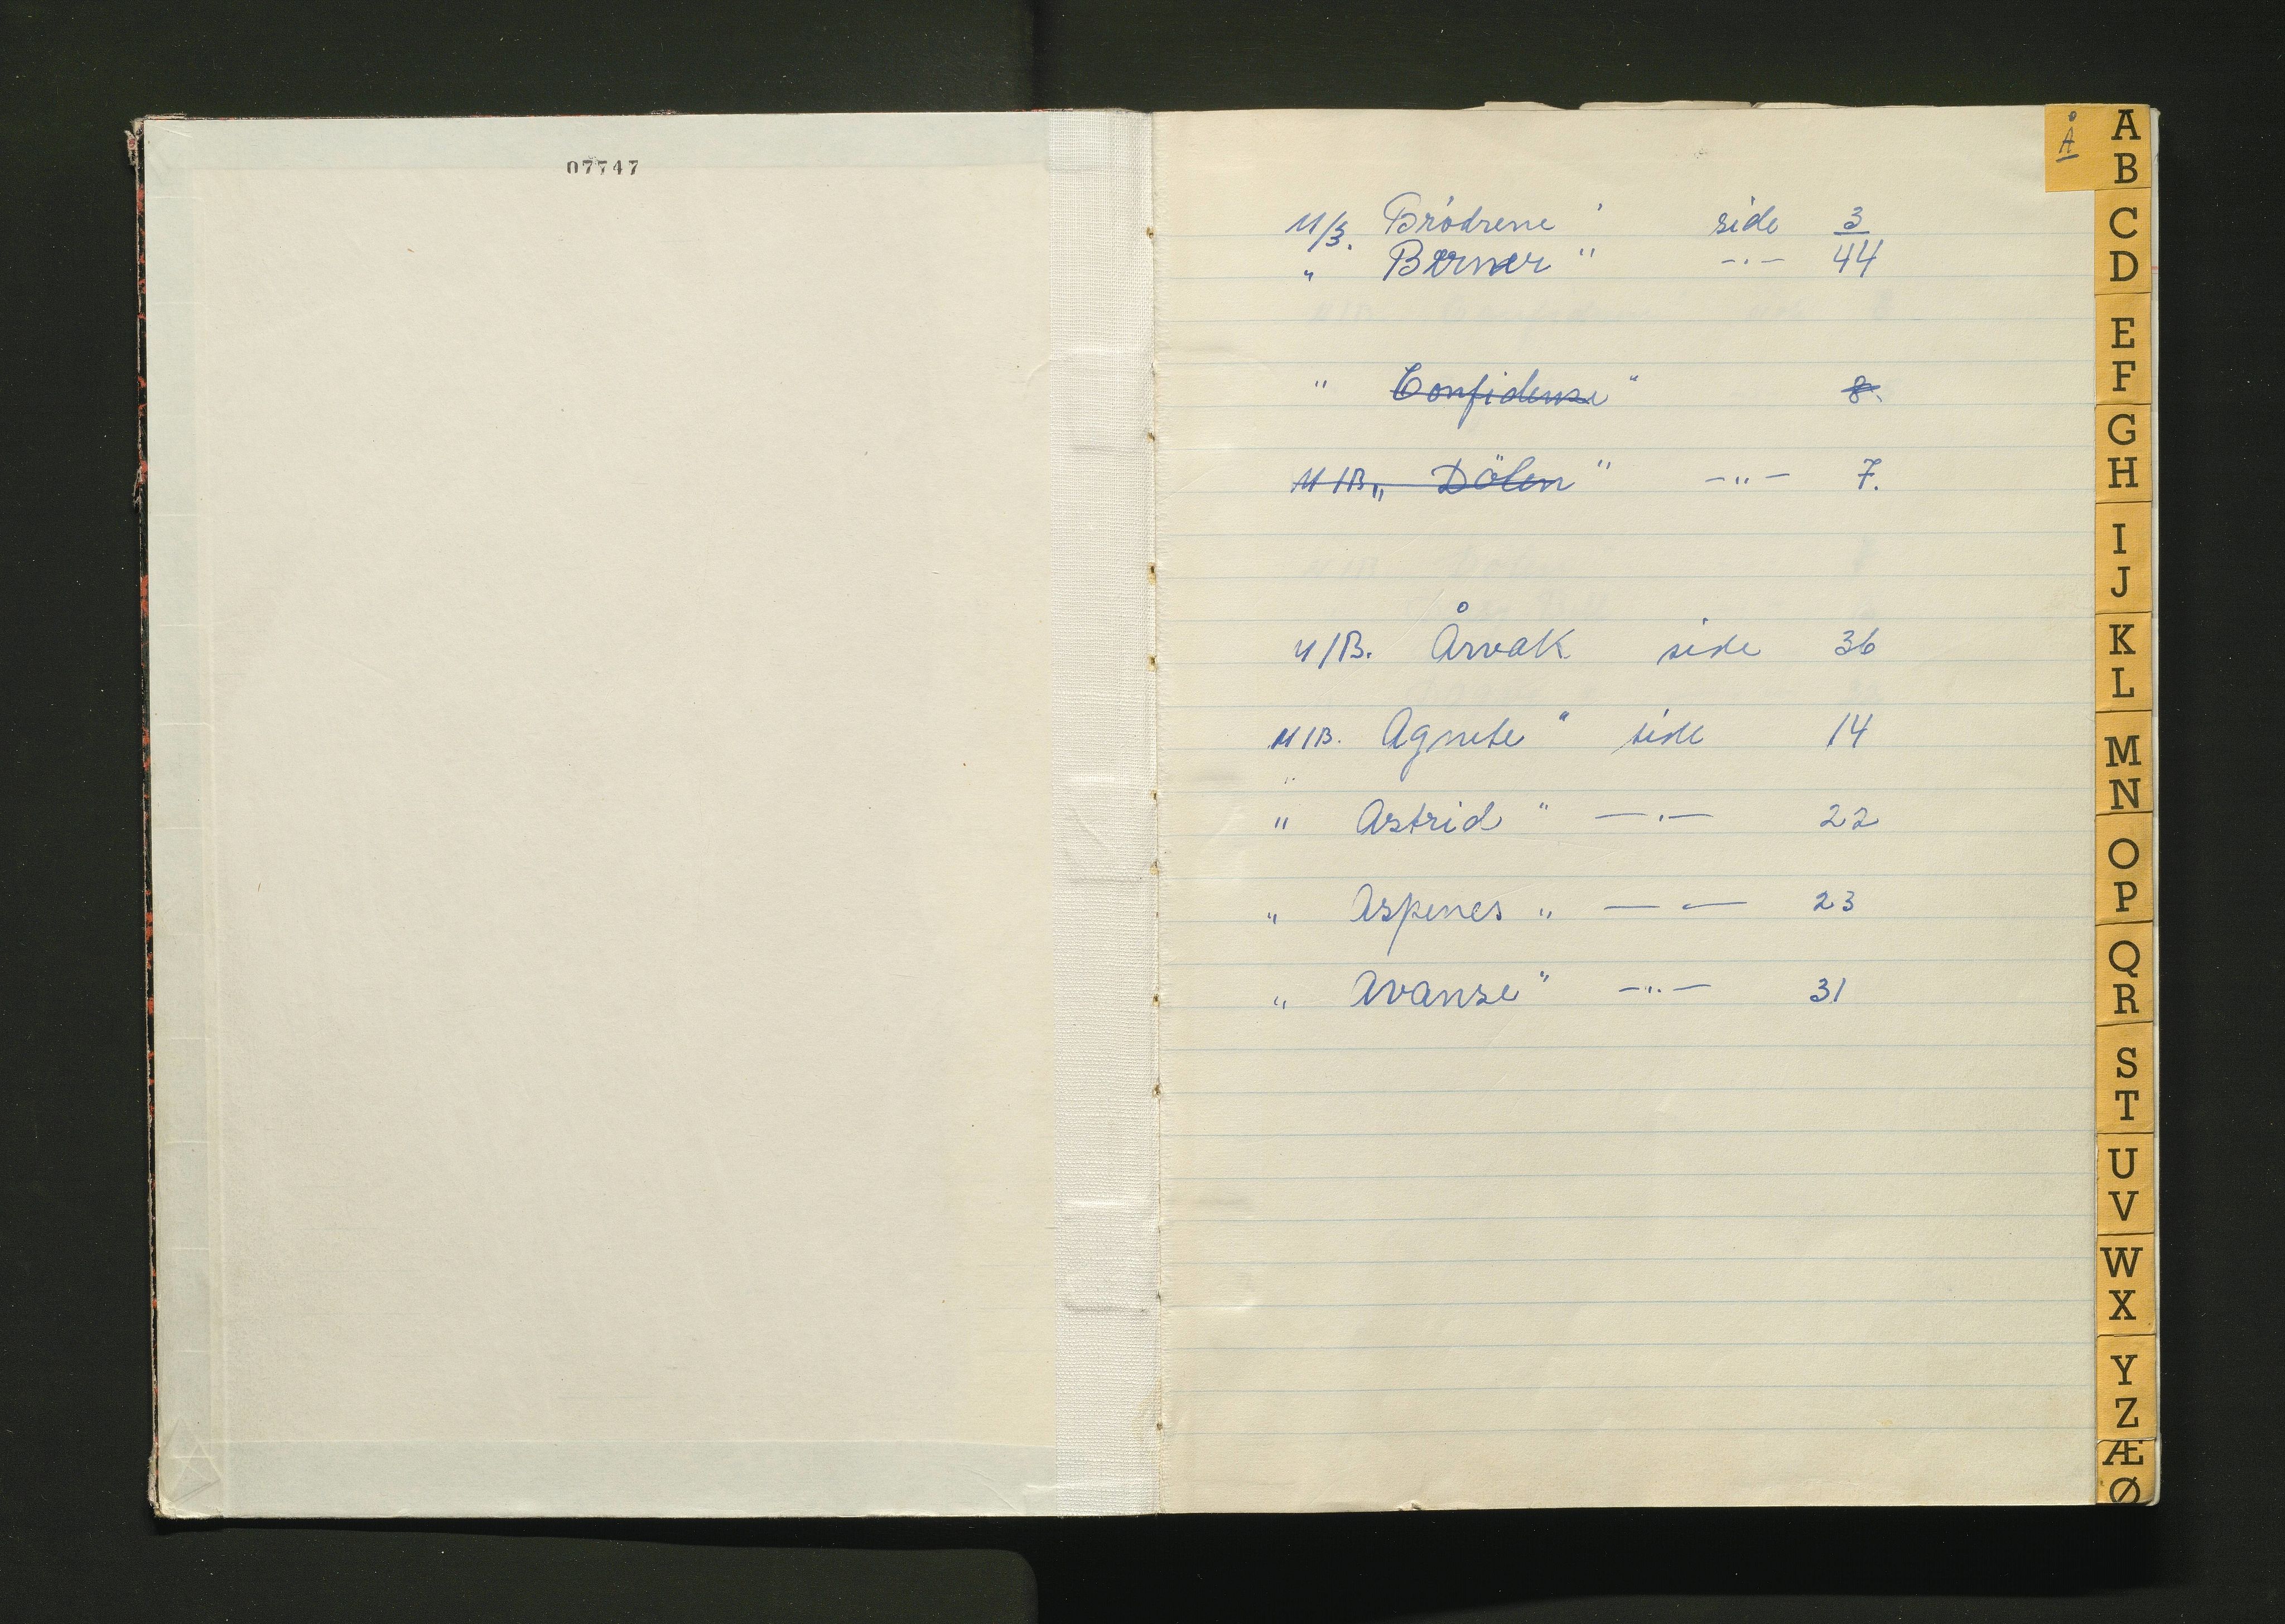 07747
M/B. Brödrene " side 3
" Berner " -"- 44
" Confidense " 8.
M/B. „ Dölen " -"- 7.
M/B. Årvak side 36
M/B. Agnete " side 14
" Astrid " -"- 22
" Aspenes " -"- 23
" Avanse " -"- 31
Å
A
B
C
D
E
F
G
H
I
J
K
L
M
N
O
P
Q
R
S
T
U
V
W
X
Y
Z
Æ
Ø